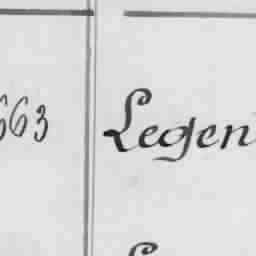 663 Legen